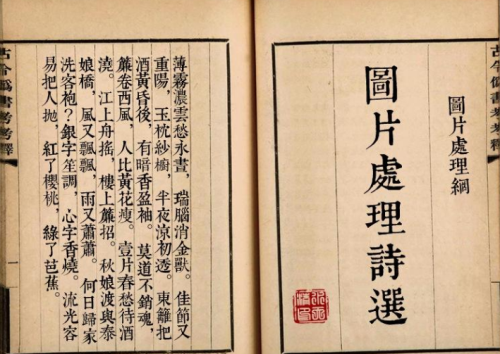 圖片處理綱
圖片處理詩選
薄霧濃雲愁永晝，瑞腦消金獸。佳節又
重陽，玉枕紗櫥，半夜涼初透。東籬把
酒黃昏後，有暗香盈袖。莫道不銷魂，
簾卷西風，人比黃花瘦。壹片春愁待酒
澆。江上舟搖，樓上簾招。秋娘渡與泰
娘橋，風又飄飄，雨又蕭蕭。何日歸家
洗客袍？銀字笙調，心字香燒。流光容
易把人拋，紅了櫻桃，綠了芭蕉。
古今偽書考考釋
一